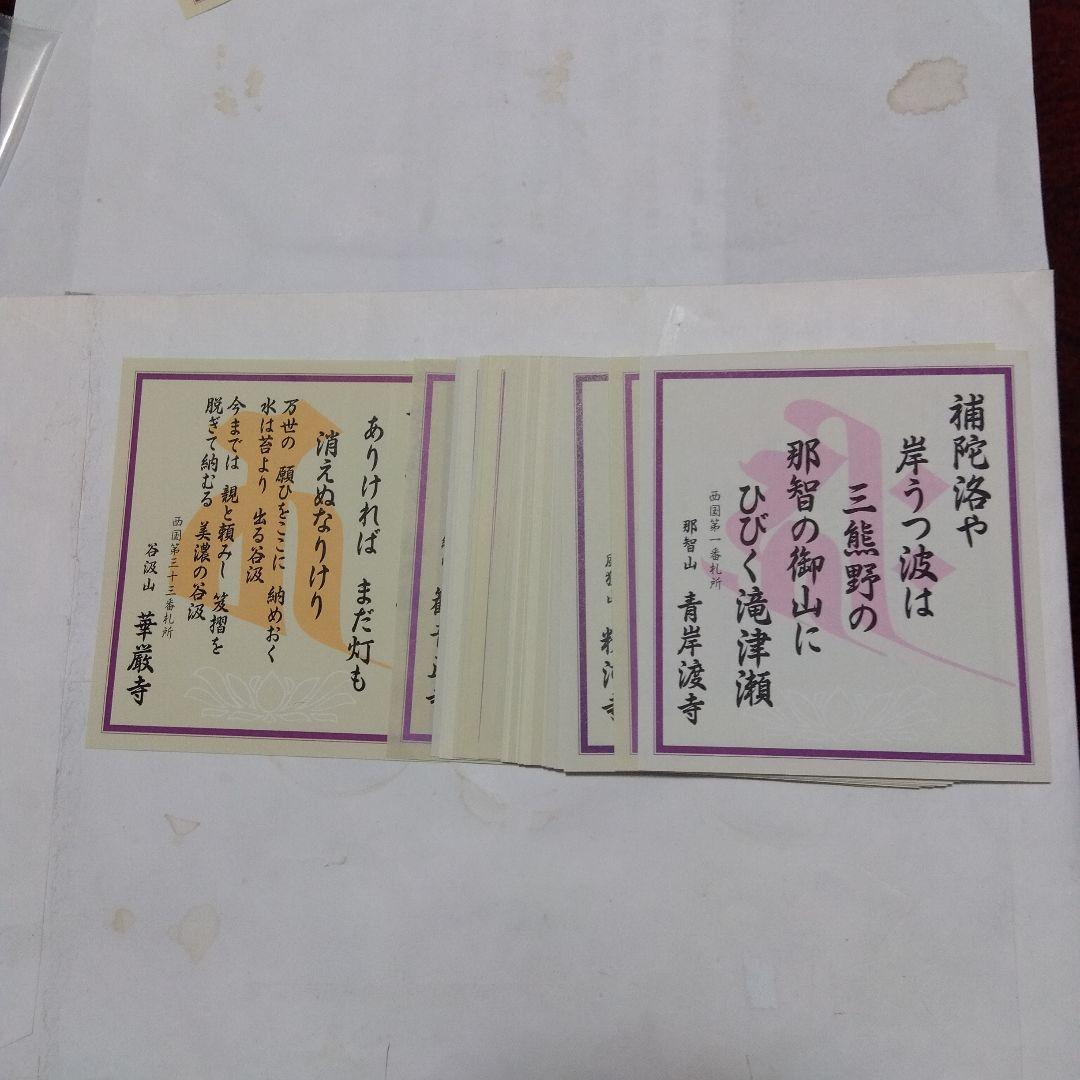 補陀洛や
岸うつ波は
三熊野の
那智の御山に
ひびく滝津瀬
西国第一番札所
那智山 青岸渡寺
粉河寺
ありければ まだ灯も
消えぬなりけり
万世の 願ひをここに 納めおく
水は苔より 出る谷汲
今までは 親と頼みし 笈摺を
脱ぎて納むる 美濃の谷汲
西国第三十三番札所
谷汲山 華厳寺